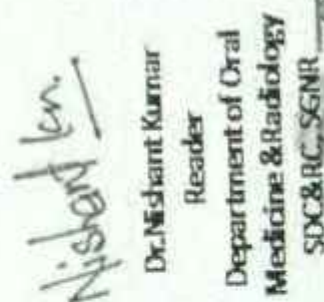 Nishant Km.
Dr.Nishant Kumar
Reader
Department of Oral
Medicine & Radiology
SDC&RC, SGNR